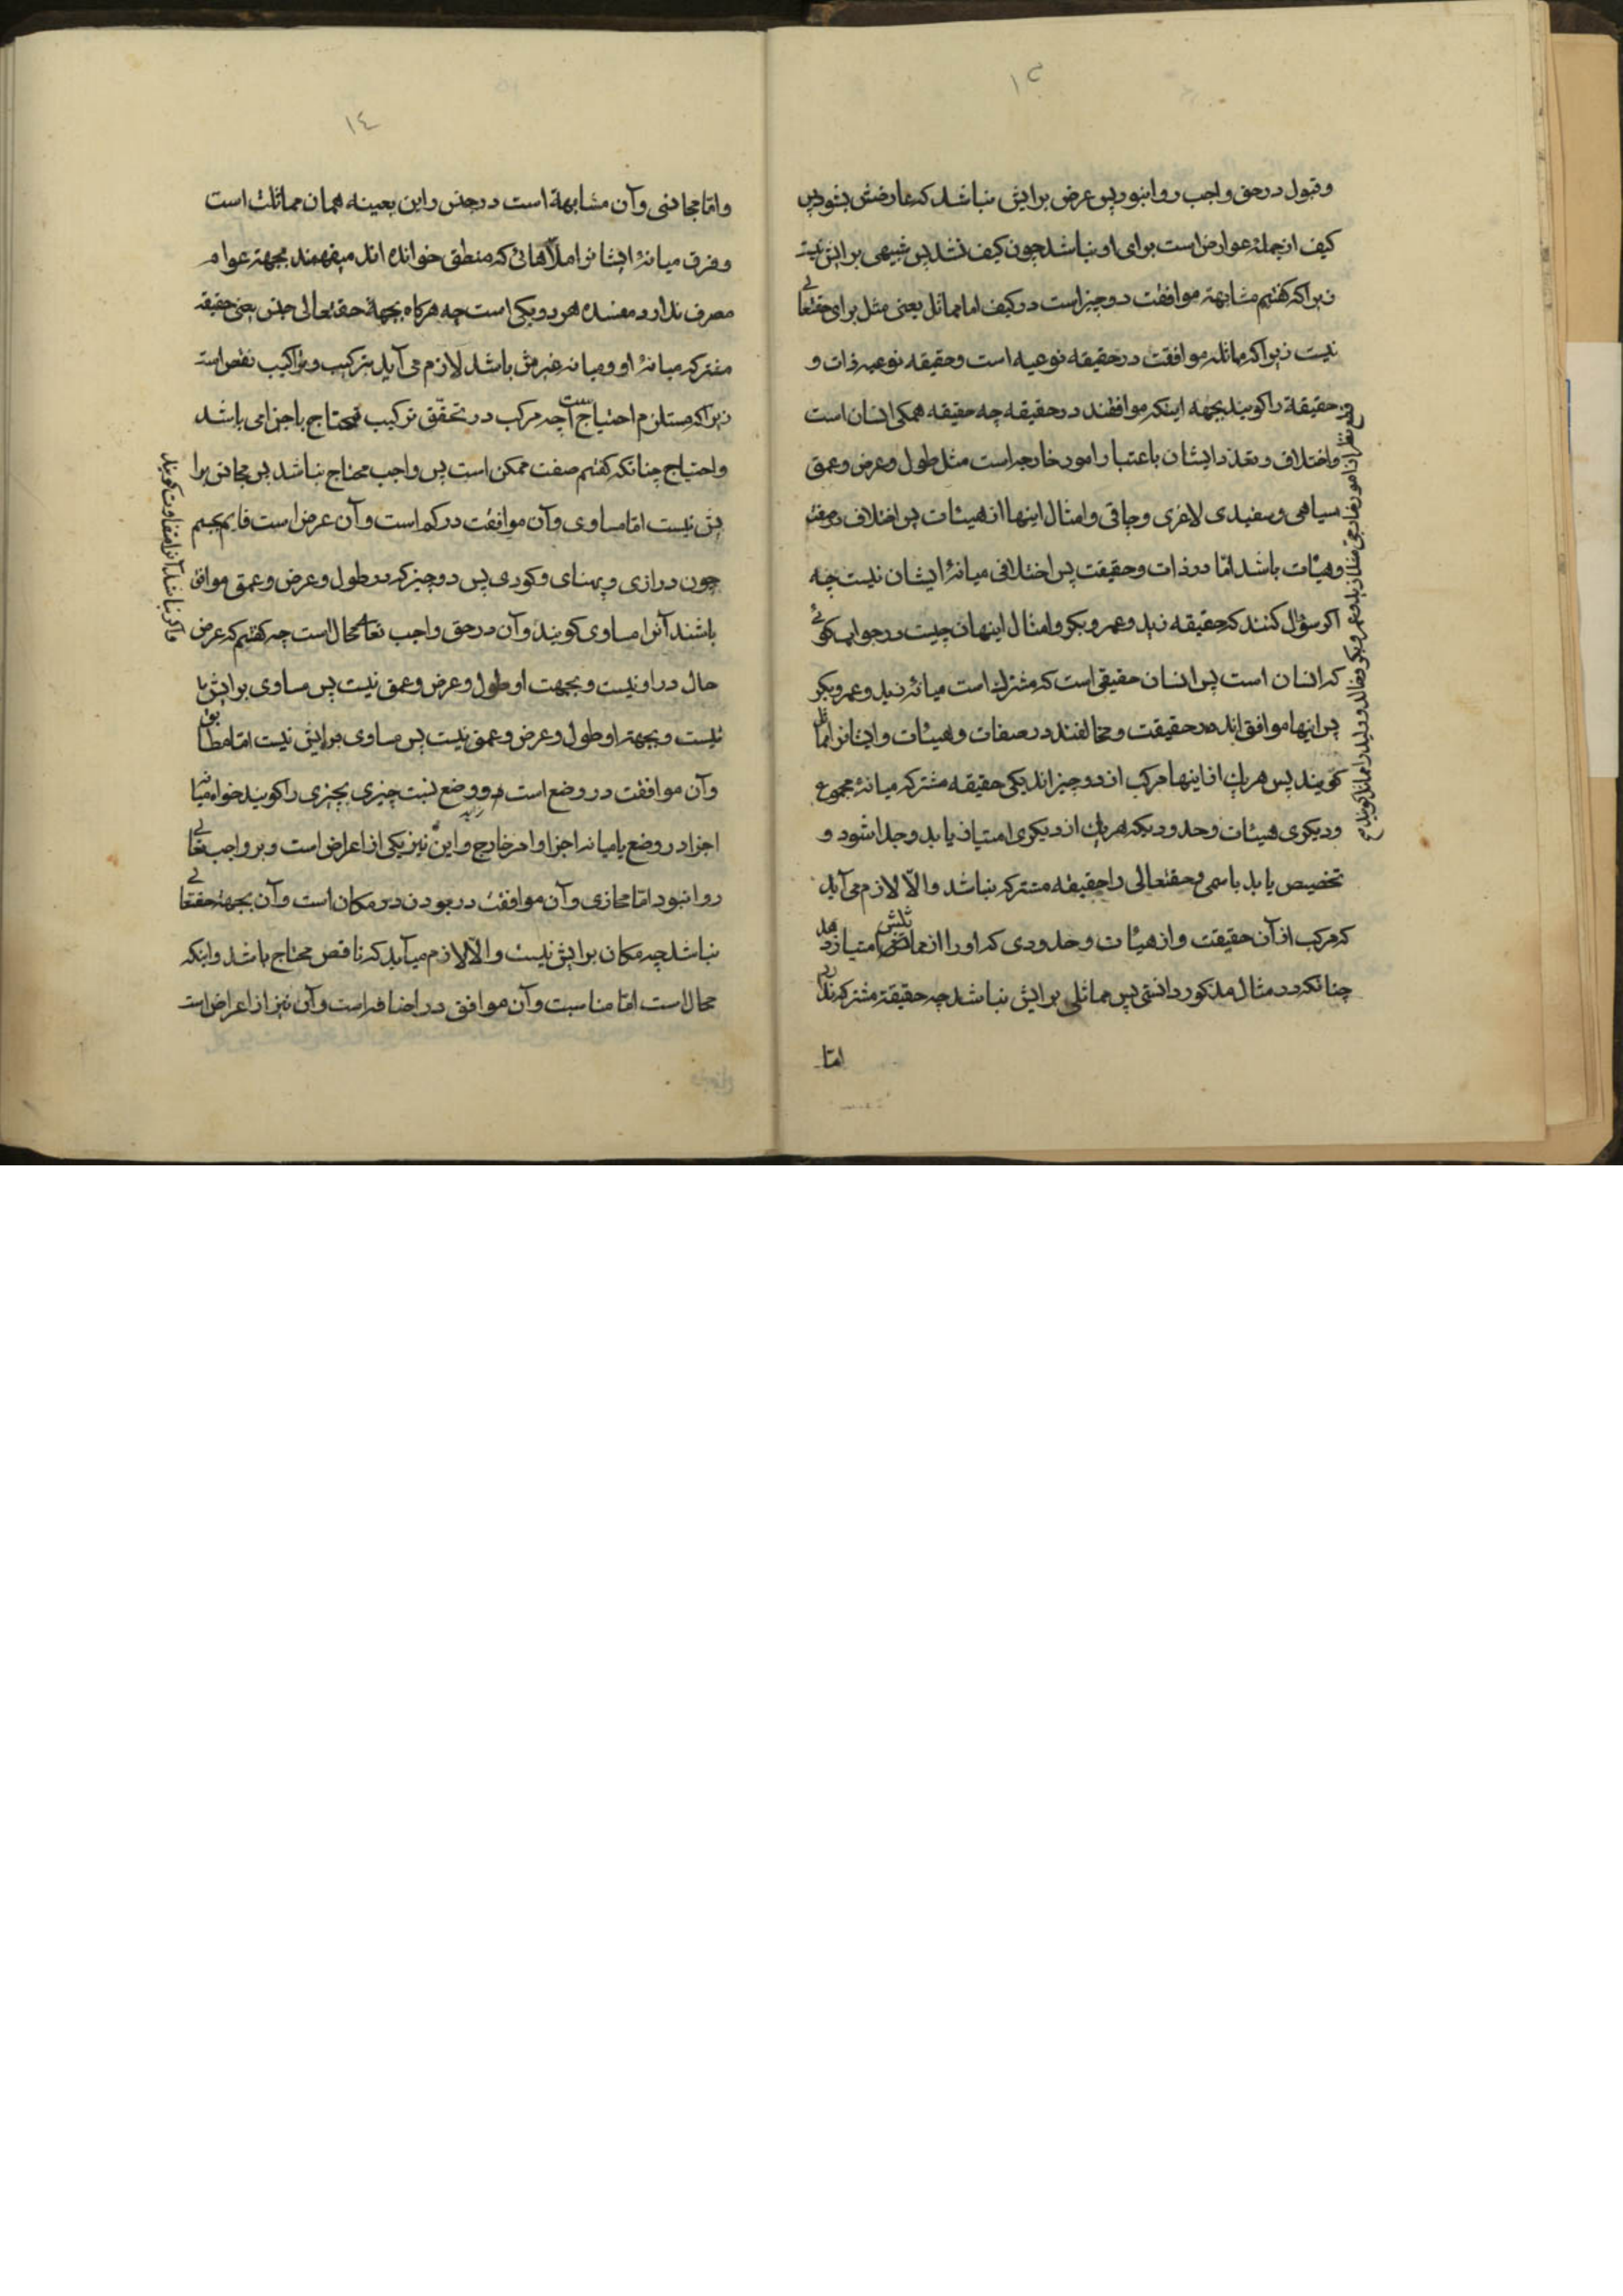 ١٣
وقبول در حق واجب روا نبود پس عرض برایش نباشد که عارضش بشود پس
کیف از جملهٔ عوارض است برای او نباشد چون کیف نشد پس شبیهی برایش نیست
زیراکه گفتیم مشابهة موافقت دو چیز است در کیف اما مماثل یعنی مثل برای حقتعالی
نیست زیراکه مماثله موافقت در حقیقه نوعیه است و حقیقه نوعیه ذات و
حقیقة را کویند بجهه اینکه موافقند در حقیقه چه حقیقه همکی انسان است
واختلاف و تعدد ایشان باعتبار امور خارجه است مثل طول وعرض وعمق
سیاهی وسفیدی لاغری وچاقی وامثال اینها از هیئات پس اختلاف در صفت
وهیئات باشد امّا در ذات وحقیقت پس اختلافی میانهٔ ایشان نیست چه
اکر سؤال کنند که حقیقه زید وعمرو وبکر وامثال اینهان چیست در جواب کوئی
که انسان است پس انسان حقیقی است که مشترک است میانهٔ زید وعمرو وبکر
پس اینها موافق اند در حقیقت و مخالفند در صفات وهیئات وایشانرا مماثل
کویند پس هریک از اینها مرکب از دو چیز اند یکی حقیقه مشترکه میانهٔ مجموع
ودیکری هیئات وحدودیکه هریک از دیکری امتیاز یابد وجدا شود و
تخصیص یابد باسمی وحقتعالی را حقیقه مشترکه نباشد والّا لازم می آید
که مرکب از آن حقیقت واز هیئات وحدودی که او را از مماثلش امتیاز دهد
چنانکه در مثال مذکور دانستی پس مماثلی برایش نباشد چه حقیقة مشترکه ندارد
امّا
قطع نظر از امور خارجی مثلا زید وعمرو وبکر وخالد وولید را مماثل کویند
١٤
وامّا مجانسی وآن مشابهة است در جنس واین بعینه همان مماثلت است
وفرق میانهٔ ایشانرا ملّاهائی که منطق خوانده اند میفهمند بجهة عوام
مصرف ندارد مفسده هر دو یکی است چه هرکاه بجهة حقتعالی جنس یعنی حقیقه
مشترکه میانهٔ او ومیانه غیرش باشد لازم می آید ترکیب وتراکیب نقص است
زیراکه مستلزم احتیاج است چه مرکب در تحقّق ترکیب محتاج باجزا می باشد
واحتیاج چنانکه گفتیم صفت ممکن است پس واجب محتاج نباشد پس مجانس برا
یش نیست امّا مساوی وآن موافقت در کم است وآن عرض است قایم بجسم
چون درازی وپهنای وکودی پس دو چیز که در طول وعرض وعمق موافق
باشند آنرا مساوی کویند وآن در حق واجب تعالی محال است چه گفتیم که عرض
حال در او نیست وبجهت او طول وعرض وعمق نیست پس مساوی برایش یا
نیست وبجهة او طول وعرض وعمق نیست پس مساوی برایش نیست امّا مطابق
وآن موافقت در وضع است ووضع نسبت چیزی بچیزی را کویند خواه میانه
اجزا در وضع یا میانه اجزا وامر خارج واین نیز یکی از اعراض است وبر واجب تعالی
روا نبود امّا محاذی وآن موافقت در بودن در مکان است وآن بجهة حقتعالی
نباشد چه مکان برایش نیست والّا لازم میآید که ناقص محتاج باشد واینکه
محال است امّا مناسبت وآن موافق در اضافه است وآن نیز از اعراض است
واکر نباشد آنرا متفاوت کویند